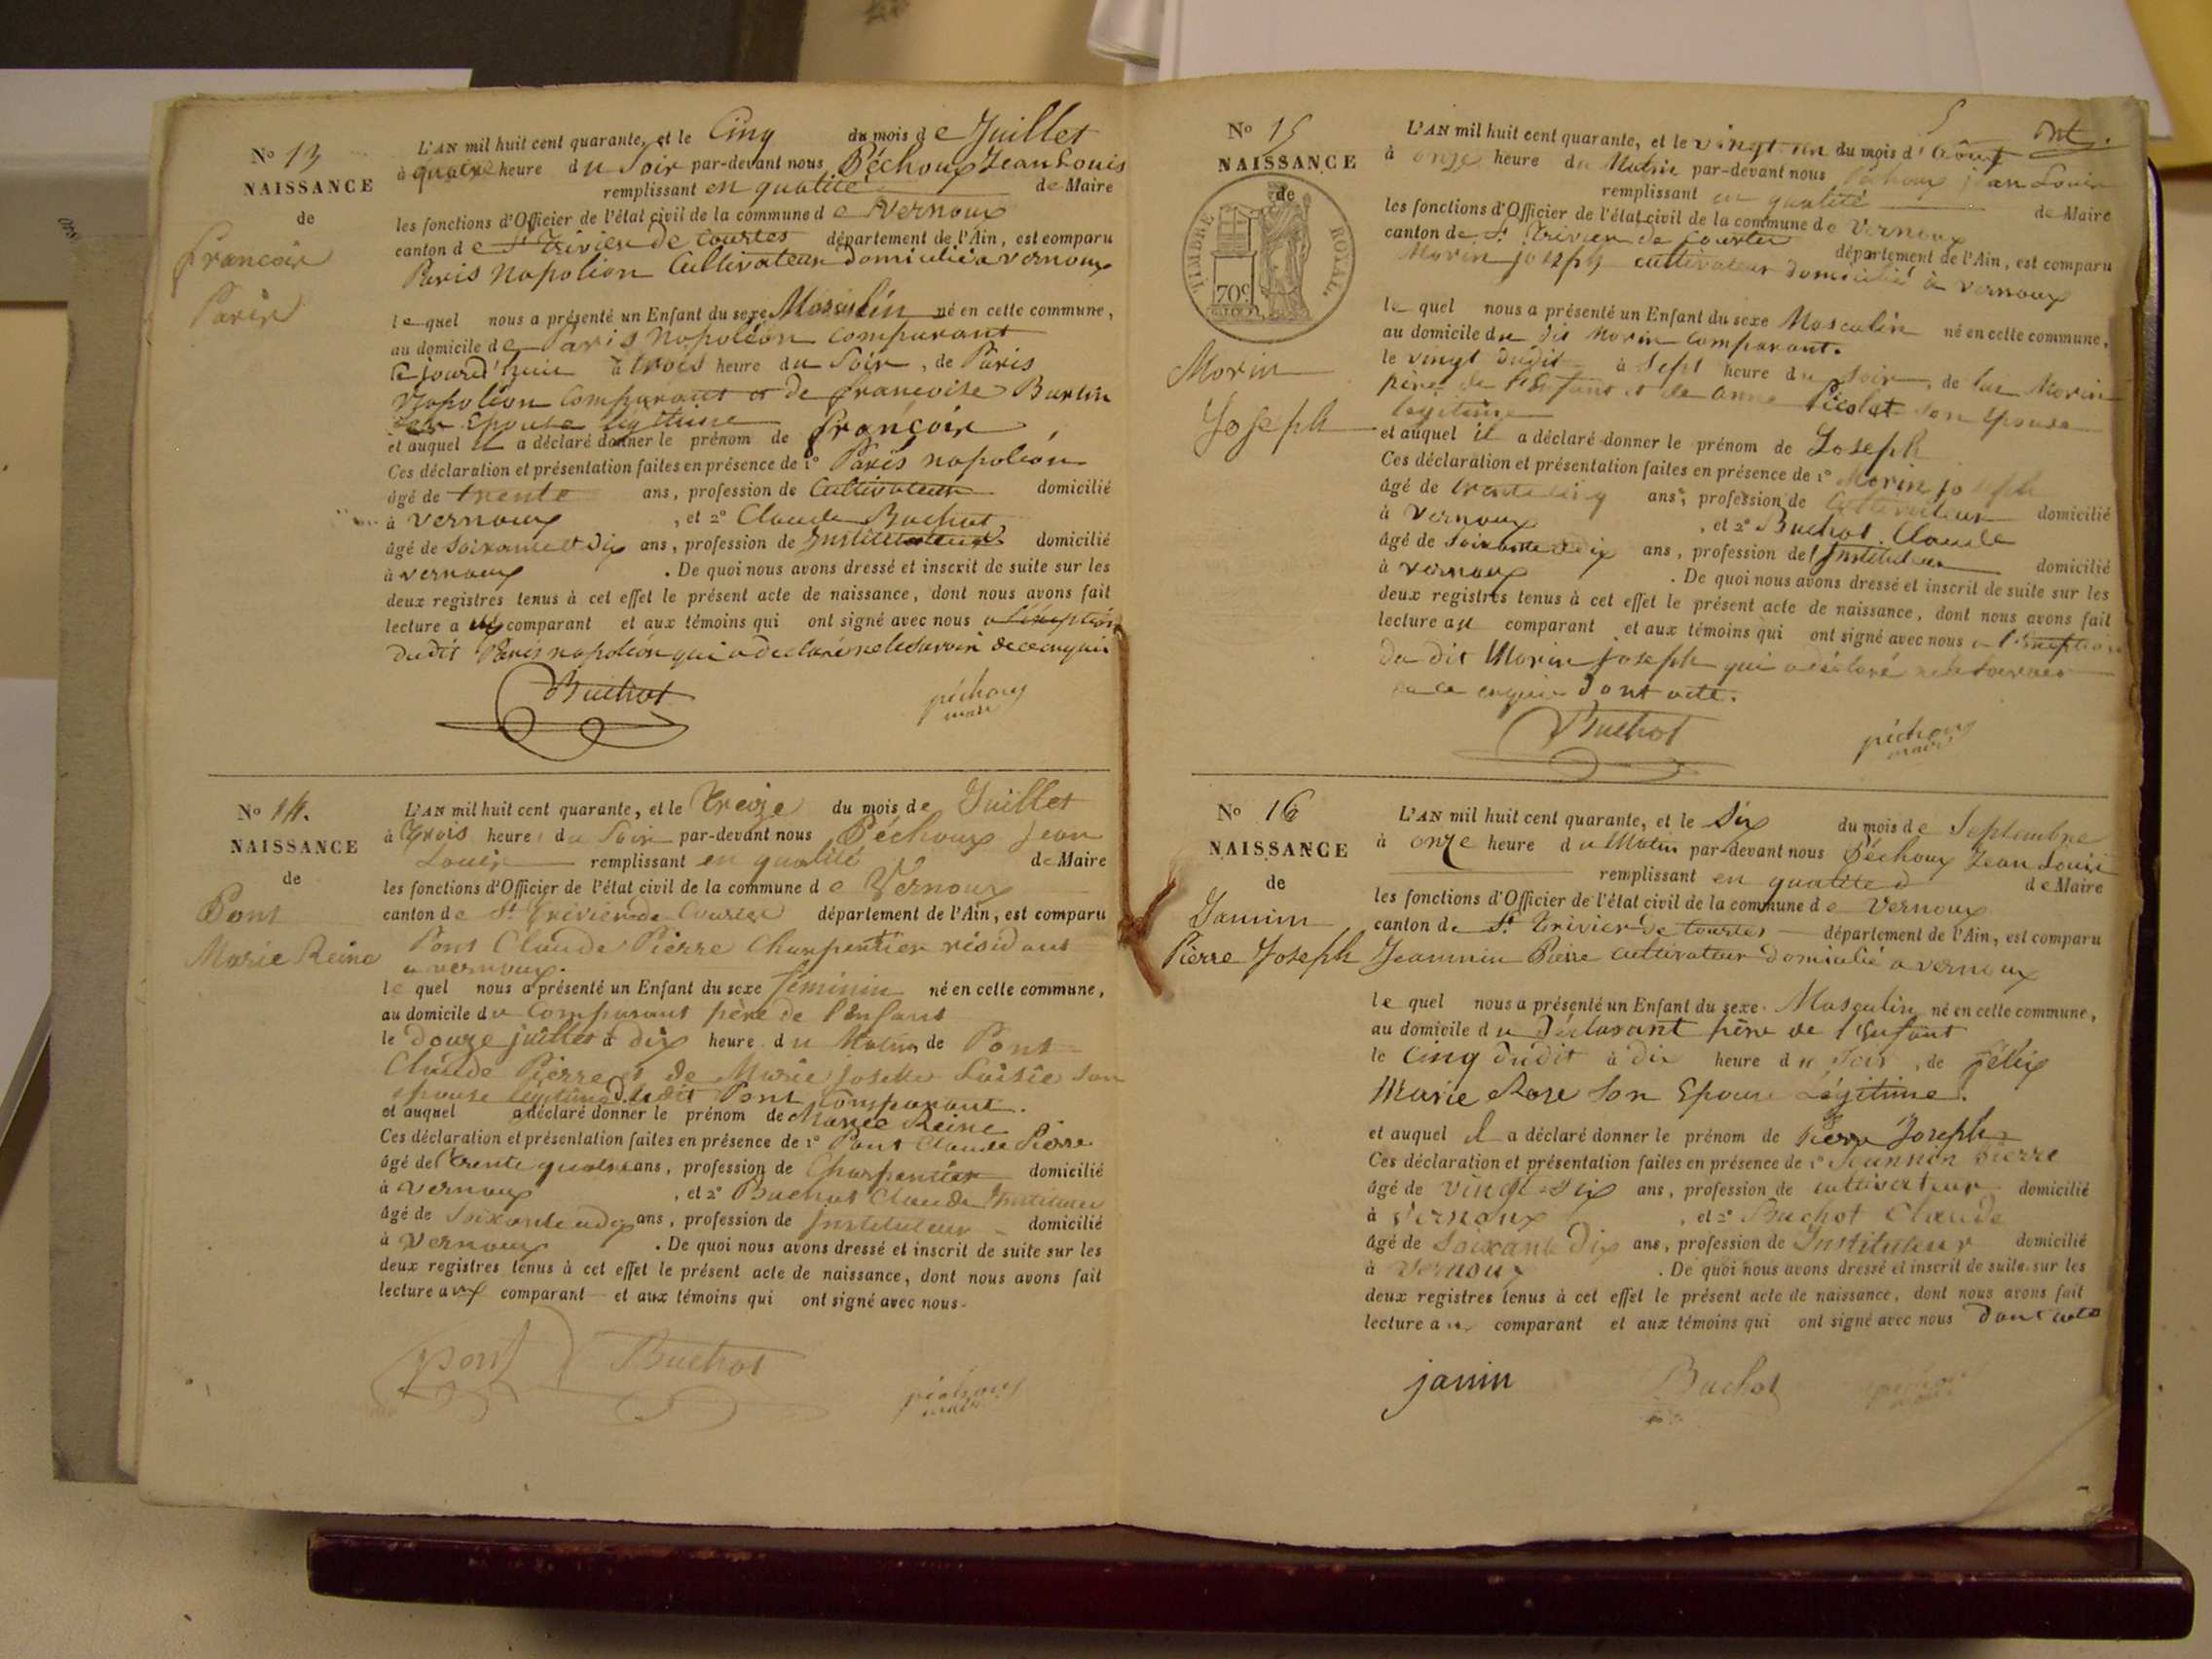 N° 13
NAISSANCE
de
François
Paris
L'AN mil huit cent quarante, et le Cinq du mois de Juillet
à quatre heure du Soir par-devant nous Péchoux Jean Louis
remplissant en qualité de Maire
les fonctions d'Officier de l'état civil de la commune de Vernoux
canton de St Trivier de Courtes département de l'Ain, est comparu
Paris Napoléon Cultivateur domicilié a vernoux
le quel nous a présenté un Enfant du sexe Masculin né en cette commune,
au domicile de Paris Napoléon comparant
ce jourd'hui à trois heure du Soir, de Paris
Napoléon Comparant et de francoise Burtin
son Epouse légitime
et auquel il a déclaré donner le prénom de françois
Ces déclaration et présentation faites en présence de 1° Paris napoléon
âgé de trente ans, profession de Cultivateur domicilié
à vernoux, et 2° Claude Buchot
âgé de Soixante et dix ans, profession de Instituteur domicilié
à vernoux. De quoi nous avons dressé et inscrit de suite sur les
deux registres tenus à cet effet le présent acte de naissance, dont nous avons fait
lecture a comparant et aux témoins qui ont signé avec nous a l'éxception
dudit Paris napoléon qui a déclaré ne le savoir de ce enquis
Buchot péchoux
maire
N° 14.
NAISSANCE
de
Pont
Marie Reine
L'AN mil huit cent quarante, et le Treize du mois de Juillet
à Trois heure du Soir par-devant nous Péchoux Jean
Louis remplissant en qualité de Maire
les fonctions d'Officier de l'état civil de la commune de Vernoux
canton de St Trivier de Courtes département de l'Ain, est comparu
Pont Claude Pierre Charpentier résidant
a vernoux.
le quel nous a présenté un Enfant du sexe féminin né en cette commune,
au domicile du Comparant père de l'enfant
le douze juillet à dix heure du Matin, de Pont
Claude Pierre et de Marie josette Loisie son
epouse légitime dudit Pont comparant.
et auquel a déclaré donner le prénom de Marie Reine
Ces déclaration et présentation faites en présence de 1° Pont Claude Pierre
âgé de Trente quatre ans, profession de Charpentier domicilié
à vernoux, et 2° Buchot Claude Instituteur
âgé de Soixante et dix ans, profession de Instituteur domicilié
à Vernoux. De quoi nous avons dressé et inscrit de suite sur les
deux registres tenus à cet effet le présent acte de naissance, dont nous avons fait
lecture aux comparant et aux témoins qui ont signé avec nous.
pont Buchot péchoux
maire
N° 15
NAISSANCE
de
TIMBRE ROYAL.
70c
Morin
Joseph
L'AN mil huit cent quarante, et le vingt un du mois d'Août
à onze heure du Matin par-devant nous Péchoux jean Louis
remplissant en qualité de Maire
les fonctions d'Officier de l'état civil de la commune de Vernoux
canton de St Trivier de Courtes département de l'Ain, est comparu
Morin joseph cultivateur domicilié à vernoux
le quel nous a présenté un Enfant du sexe Masculin né en cette commune,
au domicile du dit Morin comparant.
le vingt dudit à Sept heure du Soir, de lui Morin
père de l'enfant et de anne Picolet son épouse
légitime
et auquel il a déclaré donner le prénom de Joseph
Ces déclaration et présentation faites en présence de 1° Morin joseph
âgé de trente cinq ans, profession de Cultivateur domicilié
à Vernoux, et 2° Buchot Claude
âgé de Soixante et dix ans, profession de Instituteur domicilié
à vernoux. De quoi nous avons dressé et inscrit de suite sur les
deux registres tenus à cet effet le présent acte de naissance, dont nous avons fait
lecture au comparant et aux témoins qui ont signé avec nous a l'exception
du dit Morin joseph qui a déclaré ne le savoir
de ce enquis dont acte.
Buchot péchoux
maire
N° 16
NAISSANCE
de
Jannin
Pierre Joseph
L'AN mil huit cent quarante, et le Six du mois de Septembre
à onze heure du Matin par-devant nous Péchoux Jean Louis
remplissant en qualité d de Maire
les fonctions d'Officier de l'état civil de la commune de Vernoux
canton de St Trivier de Courtes département de l'Ain, est comparu
Jeannin Pierre cultivateur domicilié a vernoux
le quel nous a présenté un Enfant du sexe Masculin né en cette commune,
au domicile du Déclarant père de l'Enfant
le Cinq dudit à dix heure du Soir, de félix
Marie Rose Son Epouse Légitime.
et auquel il a déclaré donner le prénom de Pierre Joseph
Ces déclaration et présentation faites en présence de 1° Jeannin Pierre
âgé de vingt-six ans, profession de cultivateur domicilié
à Vernoux, et 2° Buchot Claude
âgé de Soixante Dix ans, profession de Instituteur domicilié
à Vernoux. De quoi nous avons dressé et inscrit de suite sur les
deux registres tenus à cet effet le présent acte de naissance, dont nous avons fait
lecture au comparant et aux témoins qui ont signé avec nous dont acte
janin Buchot péchoux
maire